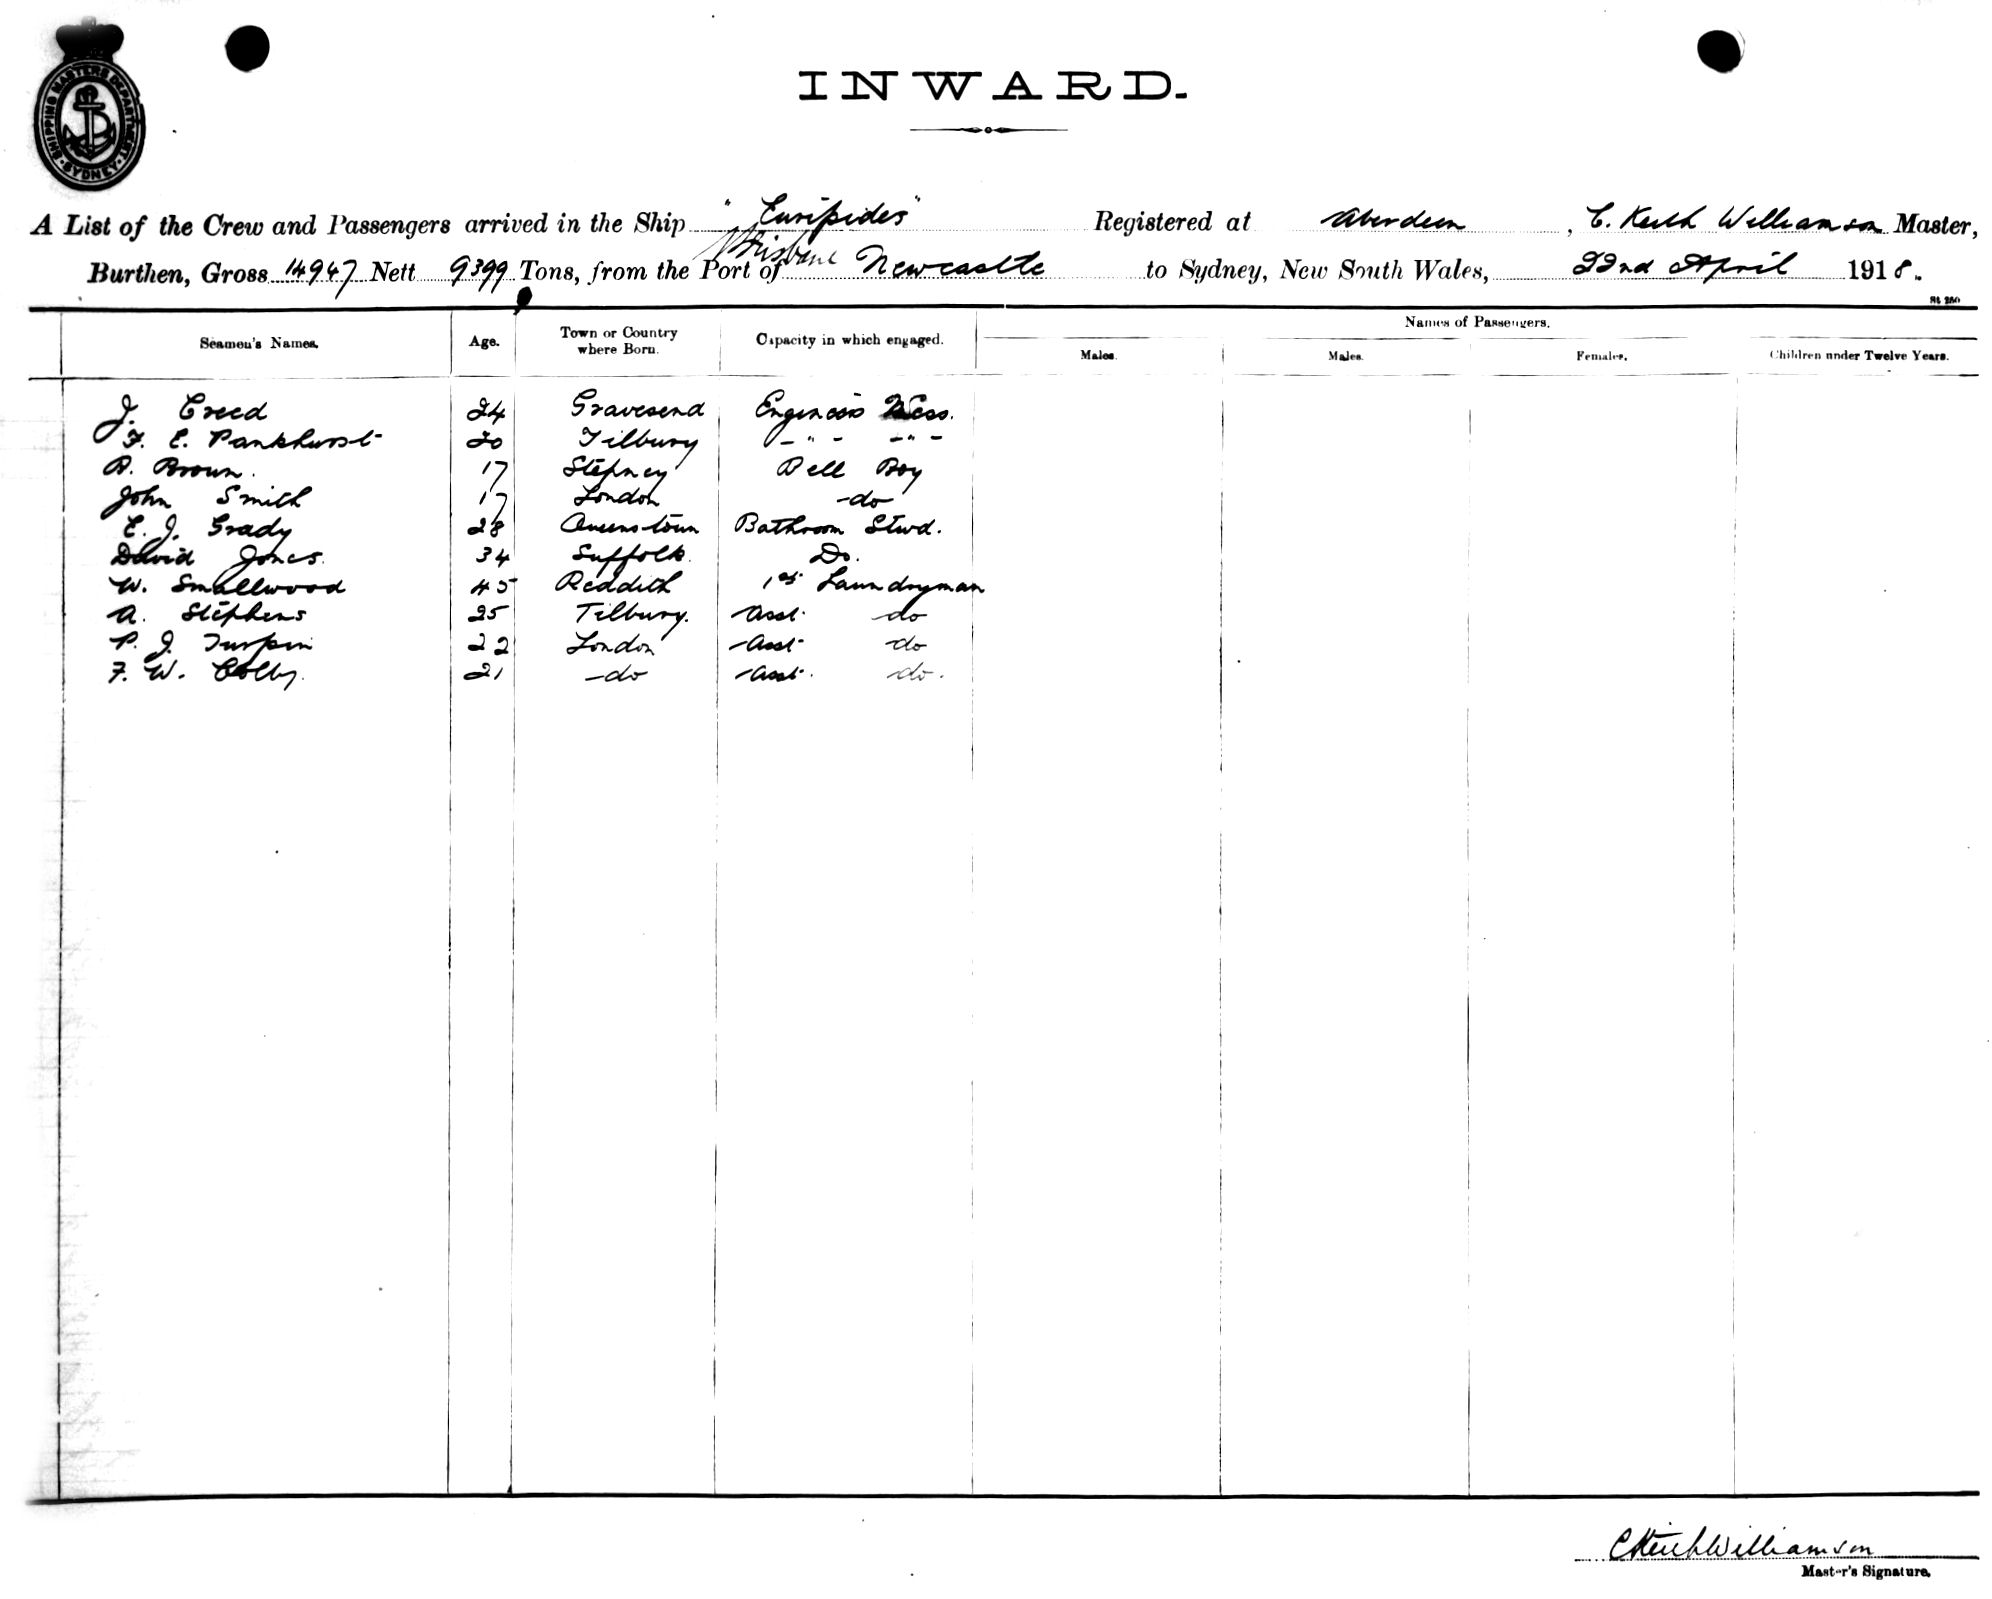 SHIPPING MASTERS DEPARTMENT
SYDNEY
INWARD.
A List of the Crew and Passengers arrived in the Ship "Euripides" Registered at Aberdeen, C. Keith Williamson Master,
Burthen, Gross 14947 Nett 9399 Tons, from the Port of Brisbane Newcastle to Sydney, New South Wales, 22nd April 1918.
Seamen's Names. Age. Town or Country where Born. Capacity in which engaged. Names of Passengers.
Males. Males. Females. Children under Twelve Years.
J. Creed 24 Gravesend Engineers Mess.
F. E. Pankhurst 20 Tilbury - " - - " -
B. Brown. 17 Stepney Bell Boy
John Smith 17 London - do
E. J. Grady 28 Queenstown Bathroom Stwd.
David Jones. 34 Suffolk. Do.
W. Smallwood 45 Reddith 1st Laundryman
A. Stephens 25 Tilbury. Asst. do
P. J. Turpin 22 London Asst do
F. W. Colby. 21 - do Asst. do.
C Keith Williamson
Master's Signature.